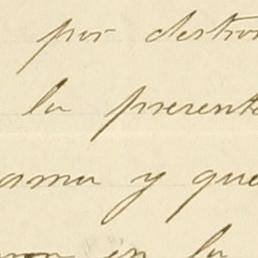 por destro
la presente
ama y que
en la